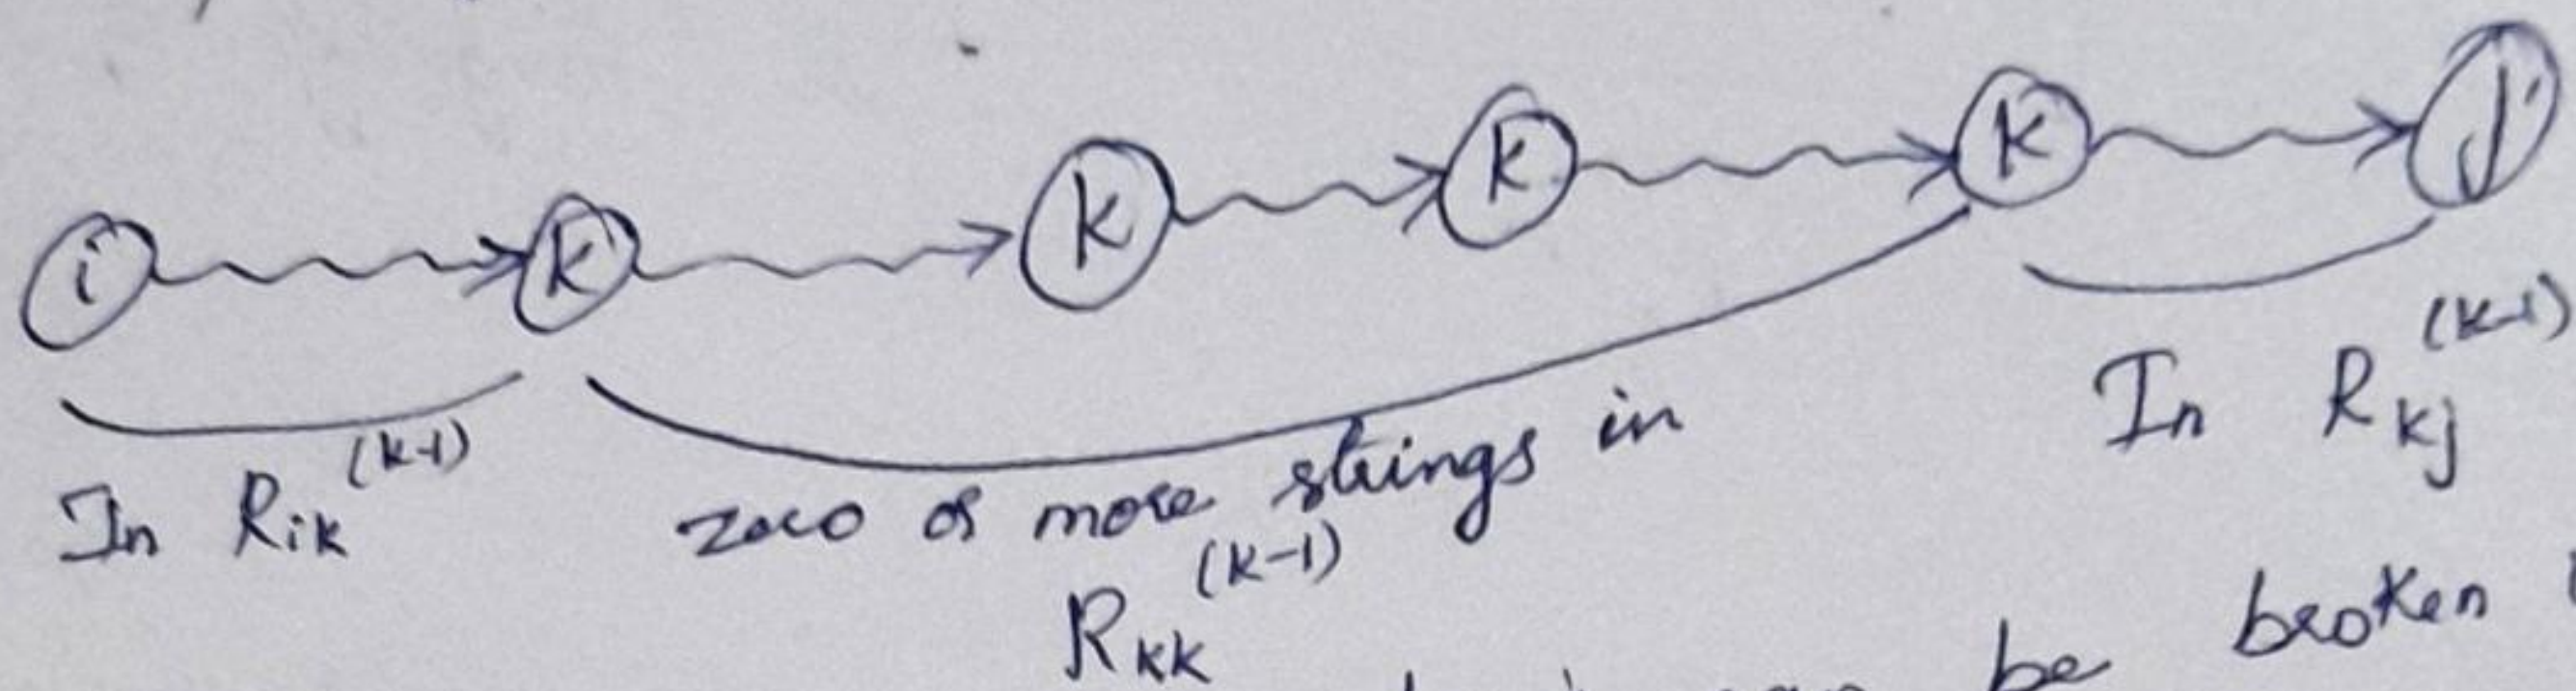 i k k k k j
In R_ik^(k-1) zero or more strings in R_kk^(k-1) In R_kj^(k-1)
can be broken